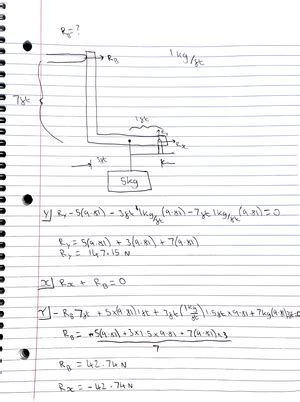 R_B=?
1kg/ft
R_B
7ft
1ft
R_x
3ft
5kg
Y| R_Y-5(9.81)-3ft 1kg/ft(9.81)-7ft 1kg/ft(9.81)=0
R_Y=5(9.81)+3(9.81)+7(9.81)
R_Y=147.15N
x| R_x + R_B=0
-R_B 7ft+5x(9.81)1ft+3ft(1kg/ft)1.5ft x9.81+7kg(9.81)
R_B= 5(9.81)+3x1.5x9.81+7(9.81)x3
7
R_B=42.74N
R_x=-42.74N